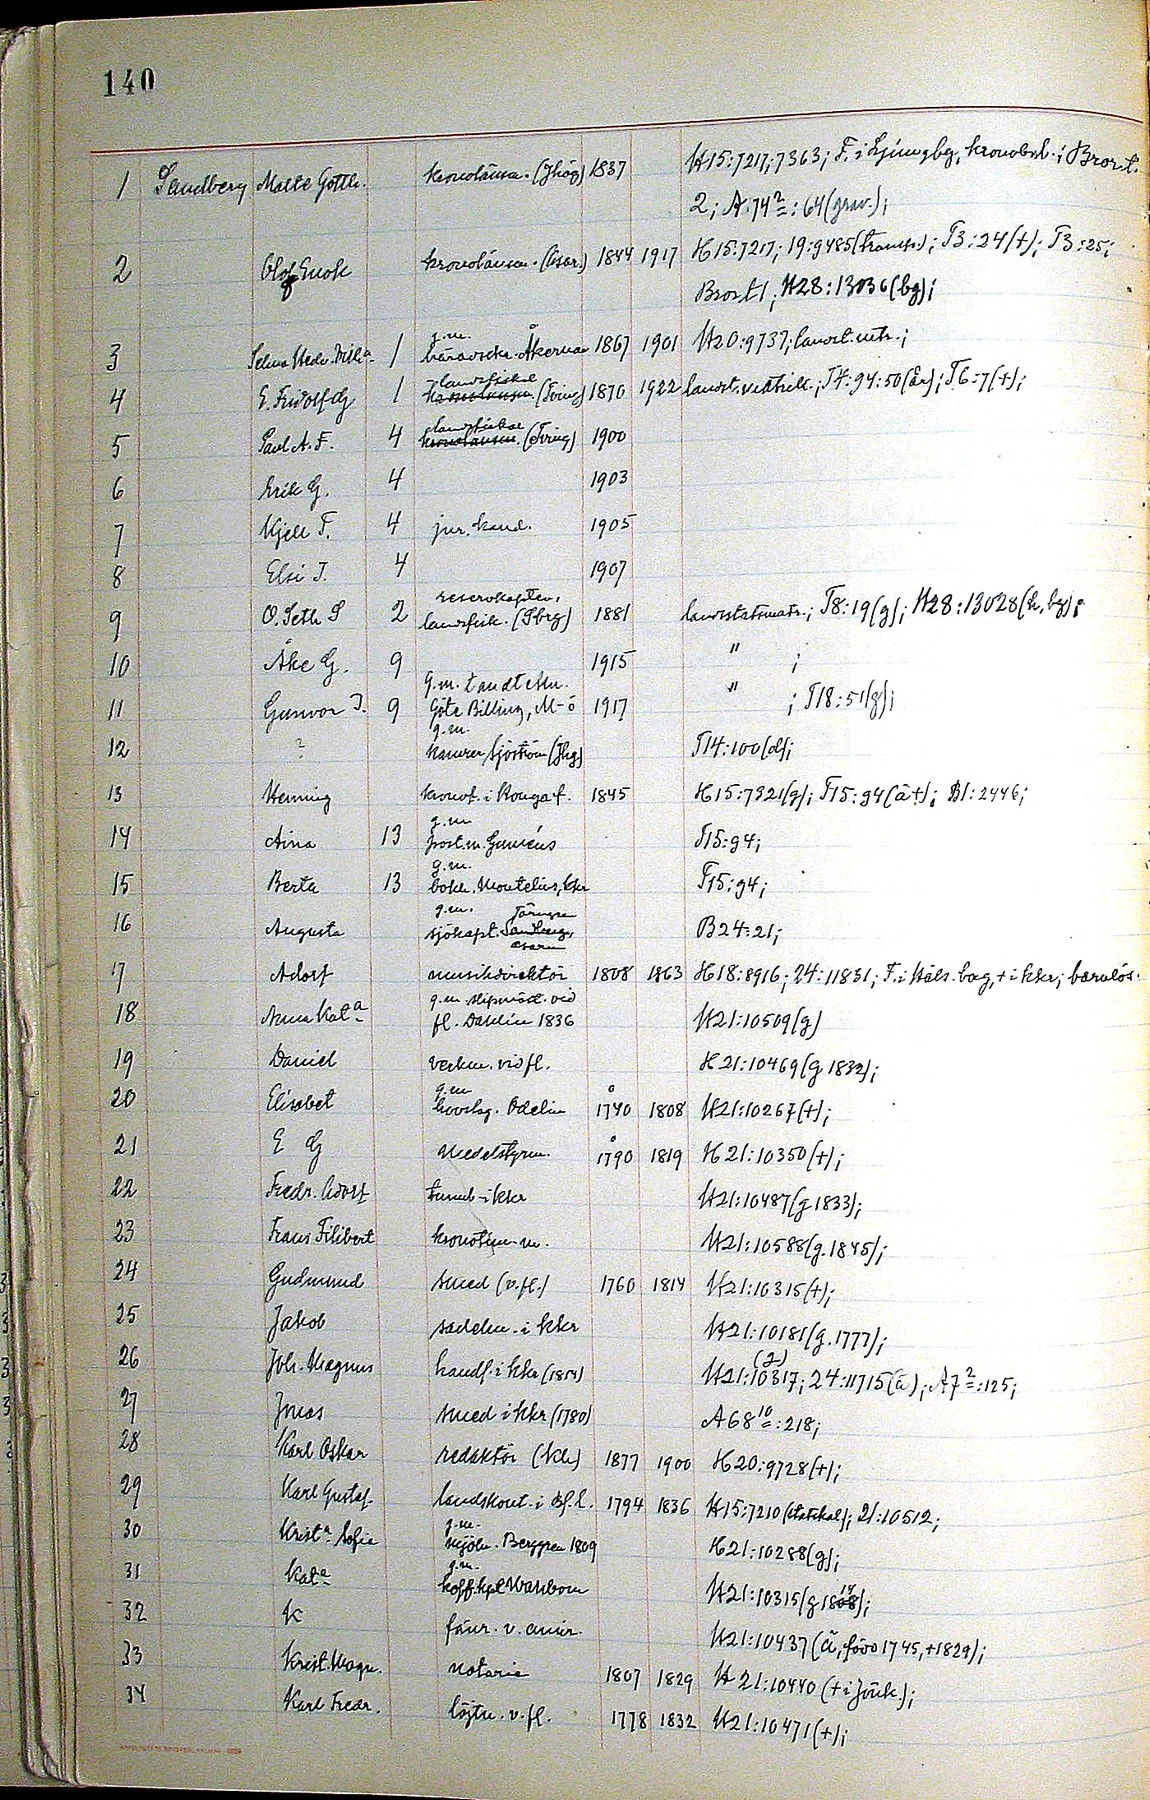 140
1 Sandberg Malte Gottl. kronolänsm. (Jhög) 1837 H15:7217; 7363; F. i Ljungbg, kronobel. i Brors t.
2; A.74²:64 (grav.);
2 Olof Enok kronolänsm. (Asar.) 1844 1917 H15:7217; 19:9485 (transp.); T3:24(+); T3:25;
Brors t 1; H28:13036 (bg);
g.m.
3 Selma Hedv. 1 Åkerman 1867 1901 H20:9737; landst.
landsfiskal
4 E. Fridolf G 1 kronolänsm. (Tving) 1870 1922 landst. ; T4:94:50 (år); T6:7(+);
landsfiskal
5 Paul A. F. 4 kronolänsm. (Tving) 1900
6 Erik G. 4 1903
7 Kjell F. 4 jur. kand. 1905
8 Elsi I. 4 1907
reservkapten,
9 O. Seth S 2 landsfisk. (Tbrg) 1881 landsstatsmatr.; T8:19(g); H28:13028 (h, bg);
10 Åke G. 9 1915 " ;
g.m. tandtekn.
11 Gunvor I. 9 Göte Billing, M-ö 1917 " ; T18:51(g);
g.m.
12 ? kamrer Sjöström (Jhg) T14:100(d);
13 Henning kronof. i Konga f. 1845 H15:7321(g); T15:94 (ä+); B1:2446;
g.m.
14 Aina 13 post.m. T15:94;
g.m.
15 Berta 13 bokh. Montelius, kkr T15:94;
g.m.
16 Augusta sjökapt. B24:21;
17 Adolf musikdirektör 1808 1863 H18:8916; 24:11831; F. i Häls.bog, + i kkr; barnlös.
g.m. vid
18 Anna Katᵃ fl. Dahlin 1836 H21:10509(g)
19 Daniel verkm. vid fl. H21:10469 (g. 1832);
g.m.
20 Elisabet hovslag. Odelin 1740 1808 H21:10267(+);
21 E G medelstyrm. 1790 1819 H21:10350(+);
22 Fredr. Adolf tunnb. i kkr H21:10487 (g 1833);
23 Frans Filibert kronotim-m. H21:10588 (g. 1845);
24 Gudmund smed (v. fl.) 1760 1814 H21:10315(+);
25 Jakob sadelm. i kkr H21:10181 (g. 1777);
(g.)
26 Joh. Magnus handl. i kkr (1814) H21:10317; 24:11715(ä); A7²:125;
27 Jonas smed i kkr (1780) A68¹⁰:218;
28 Karl Oskar redaktör (Khn) 1877 1900 H20:9728(+);
29 Karl Gustaf landskont. i Bl. l. 1794 1836 H15:7210 ; 21:10512;
g.m.
30 Kristᵃ Sofia mjöln. Berggren 1809 H21:10288(g);
g.m.
31 Katᵃ koff.kpt Wahlbom H21:10315 (g 1814);
32 K fänr. v. amir. H21:10437 (ä, född 1745, +1829);
33 Krist. Magn. notarie 1807 1829 H21:10440 (+ i Jönk.);
34 Karl Fredr. löjtn. v. fl. 1778 1832 H21:10471(+);